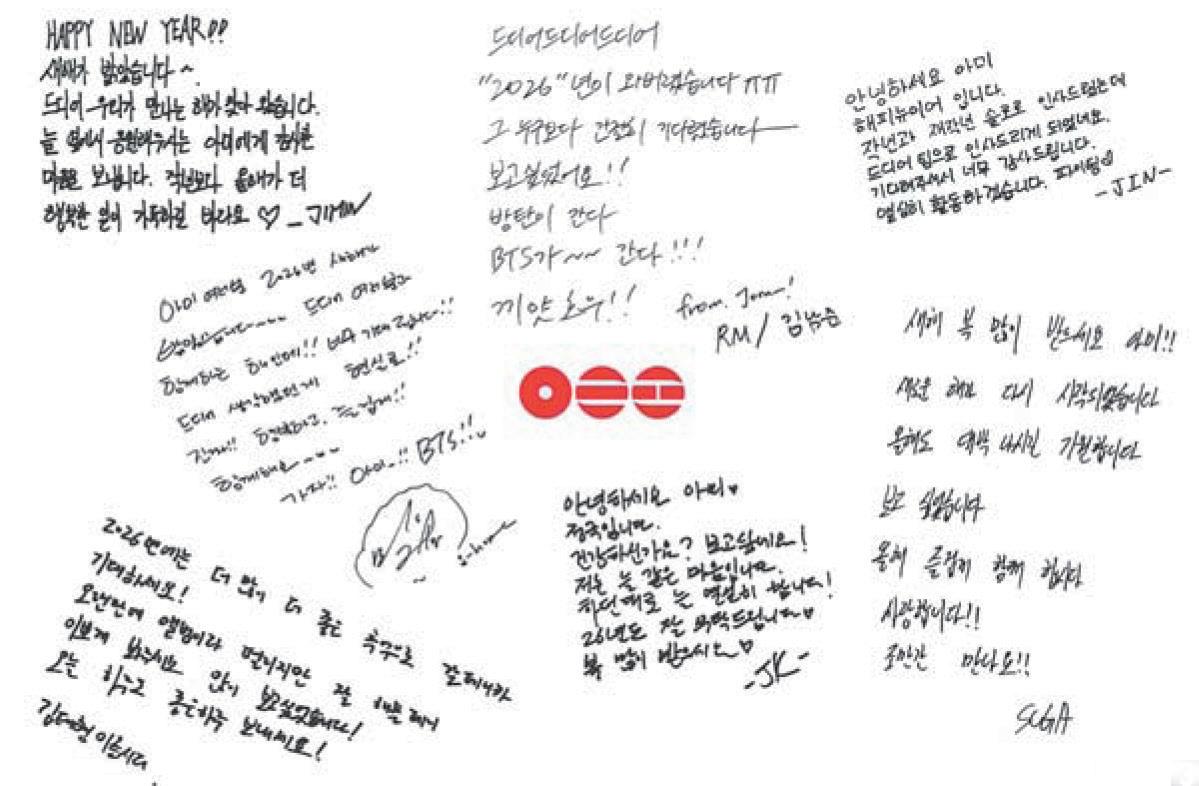 HAPPY NEW YEAR!!
새해가 밝았습니다~
드디어 우리가 만나는 해가 왔습니다.
늘 앞에서 응원해주시는 아미에게 감사한
마음을 보냅니다. 작년보다 올해가 더
행복한 일이 가득하길 바라요 ♡ -JIMIN
드디어드디어드디어
"2026"년이 와버렸습니다 ㅠㅠ
그 누구보다 간절히 기다렸습니다
보고싶었어요!!
방탄이 간다
BTS가~~ 간다!!!
끼얏호우!!
from. Joon!
RM / 김남준
안녕하세요 아미
해피뉴이어 입니다.
작년과 재작년 솔로로 인사드렸는데
드디어 팀으로 인사드리게 되었네요.
기다려주셔서 너무 감사드립니다.
열심히 활동하겠습니다. 파이팅♡
-JIN-
아미 여러분 2026년 새해가
밝았습니다~~~ 드디어 여러분과
함께하는 해인데!! 너무 기대됩니다!!
드디어 생각했던게 현실로!!
진짜!! 행복하고, 즐겁게!!
함께해요~~~
가자!! 아미..!! BTS!!
새해 복 많이 받으세요 아미!!
새로운 해가 다시 시작되었습니다
올해도 대박 나시길 기원합니다
보고 싶었습니다
올해 즐겁게 함께 합시다
사랑합니다!!
조만간 만나요!!
SUGA
2026년에는 더 많이 더 좋은 추억으로 갈테니까
기대하세요!
오랜만에 앨범이라 떨리지만 잘 해볼테니
이쁘게 봐주세요 많이 보고싶었습니다!
오늘 하루도 좋은하루 보내세요!
김태형 이올시다.
안녕하세요 아미♥
정국입니다.
건강하신가요? 보고싶네요!
저는 늘 같은 마음입니다.
하던대로 늘 열심히 합니다!
26년도 잘 부탁드립니다♥
복 많이 받으시는♡
-JK-